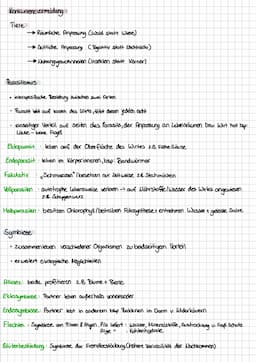 Konkurrenzvermeidung
Tiere:
→ Räumliche Anpassung (Wald statt Wiese)
→ Zeitliche Anpassung (Tagaktiv statt Nachtaktiv)
→ Nahrungsgewohnheiten (Insekten statt Körner)
Parasitismus:
• interspezifische Beziehung zwischen zwei Arten
• Parasit lebt auf Kosten des Wirts, tötet diesen jedoch nicht
• einseitiger Vorteil auf Seiten des Parasits, der Anpassung an
Läuse - keine Flügel
Ektoparasit: leben auf der Oberfläche des Wirtes z.B.
Endoparasit: leben in Körperinneren, bsp: Bandwürmer
Fakultativ: „Schmarotzer" Parasiten auf Zeitweise z.B. Stechmücken
Vollparasiten: autotrophe Lebensweise verloren → auf Nährstoffe/Wasser des Wirts angewiesen
z.B.
Halbparasiten: besitzen Chlorophyll/betreiben Fotosynthese; entnehmen Wasser + gelöste Salze
Symbiose:
• Zusammenleben verschiedener Organismen zu beidseitigen Vorteil
• erweitert ökologische Möglichkeiten
Allianz: beide profitieren z.B. Blume + Biene
Ektosymbiose: Partner leben außerhalb voneinander
Endosymbiose: Partner lebt in anderem bsp Bakterien in Darm v. Wiederkäuern
Flechten: Symbiose von Pilzen & Algen, Pilz liefert: Wasser, Mineralstoffe,
Alge - Kohlenhydrate
Blütenbestäubung: Symbiose der Fremdbestäubung